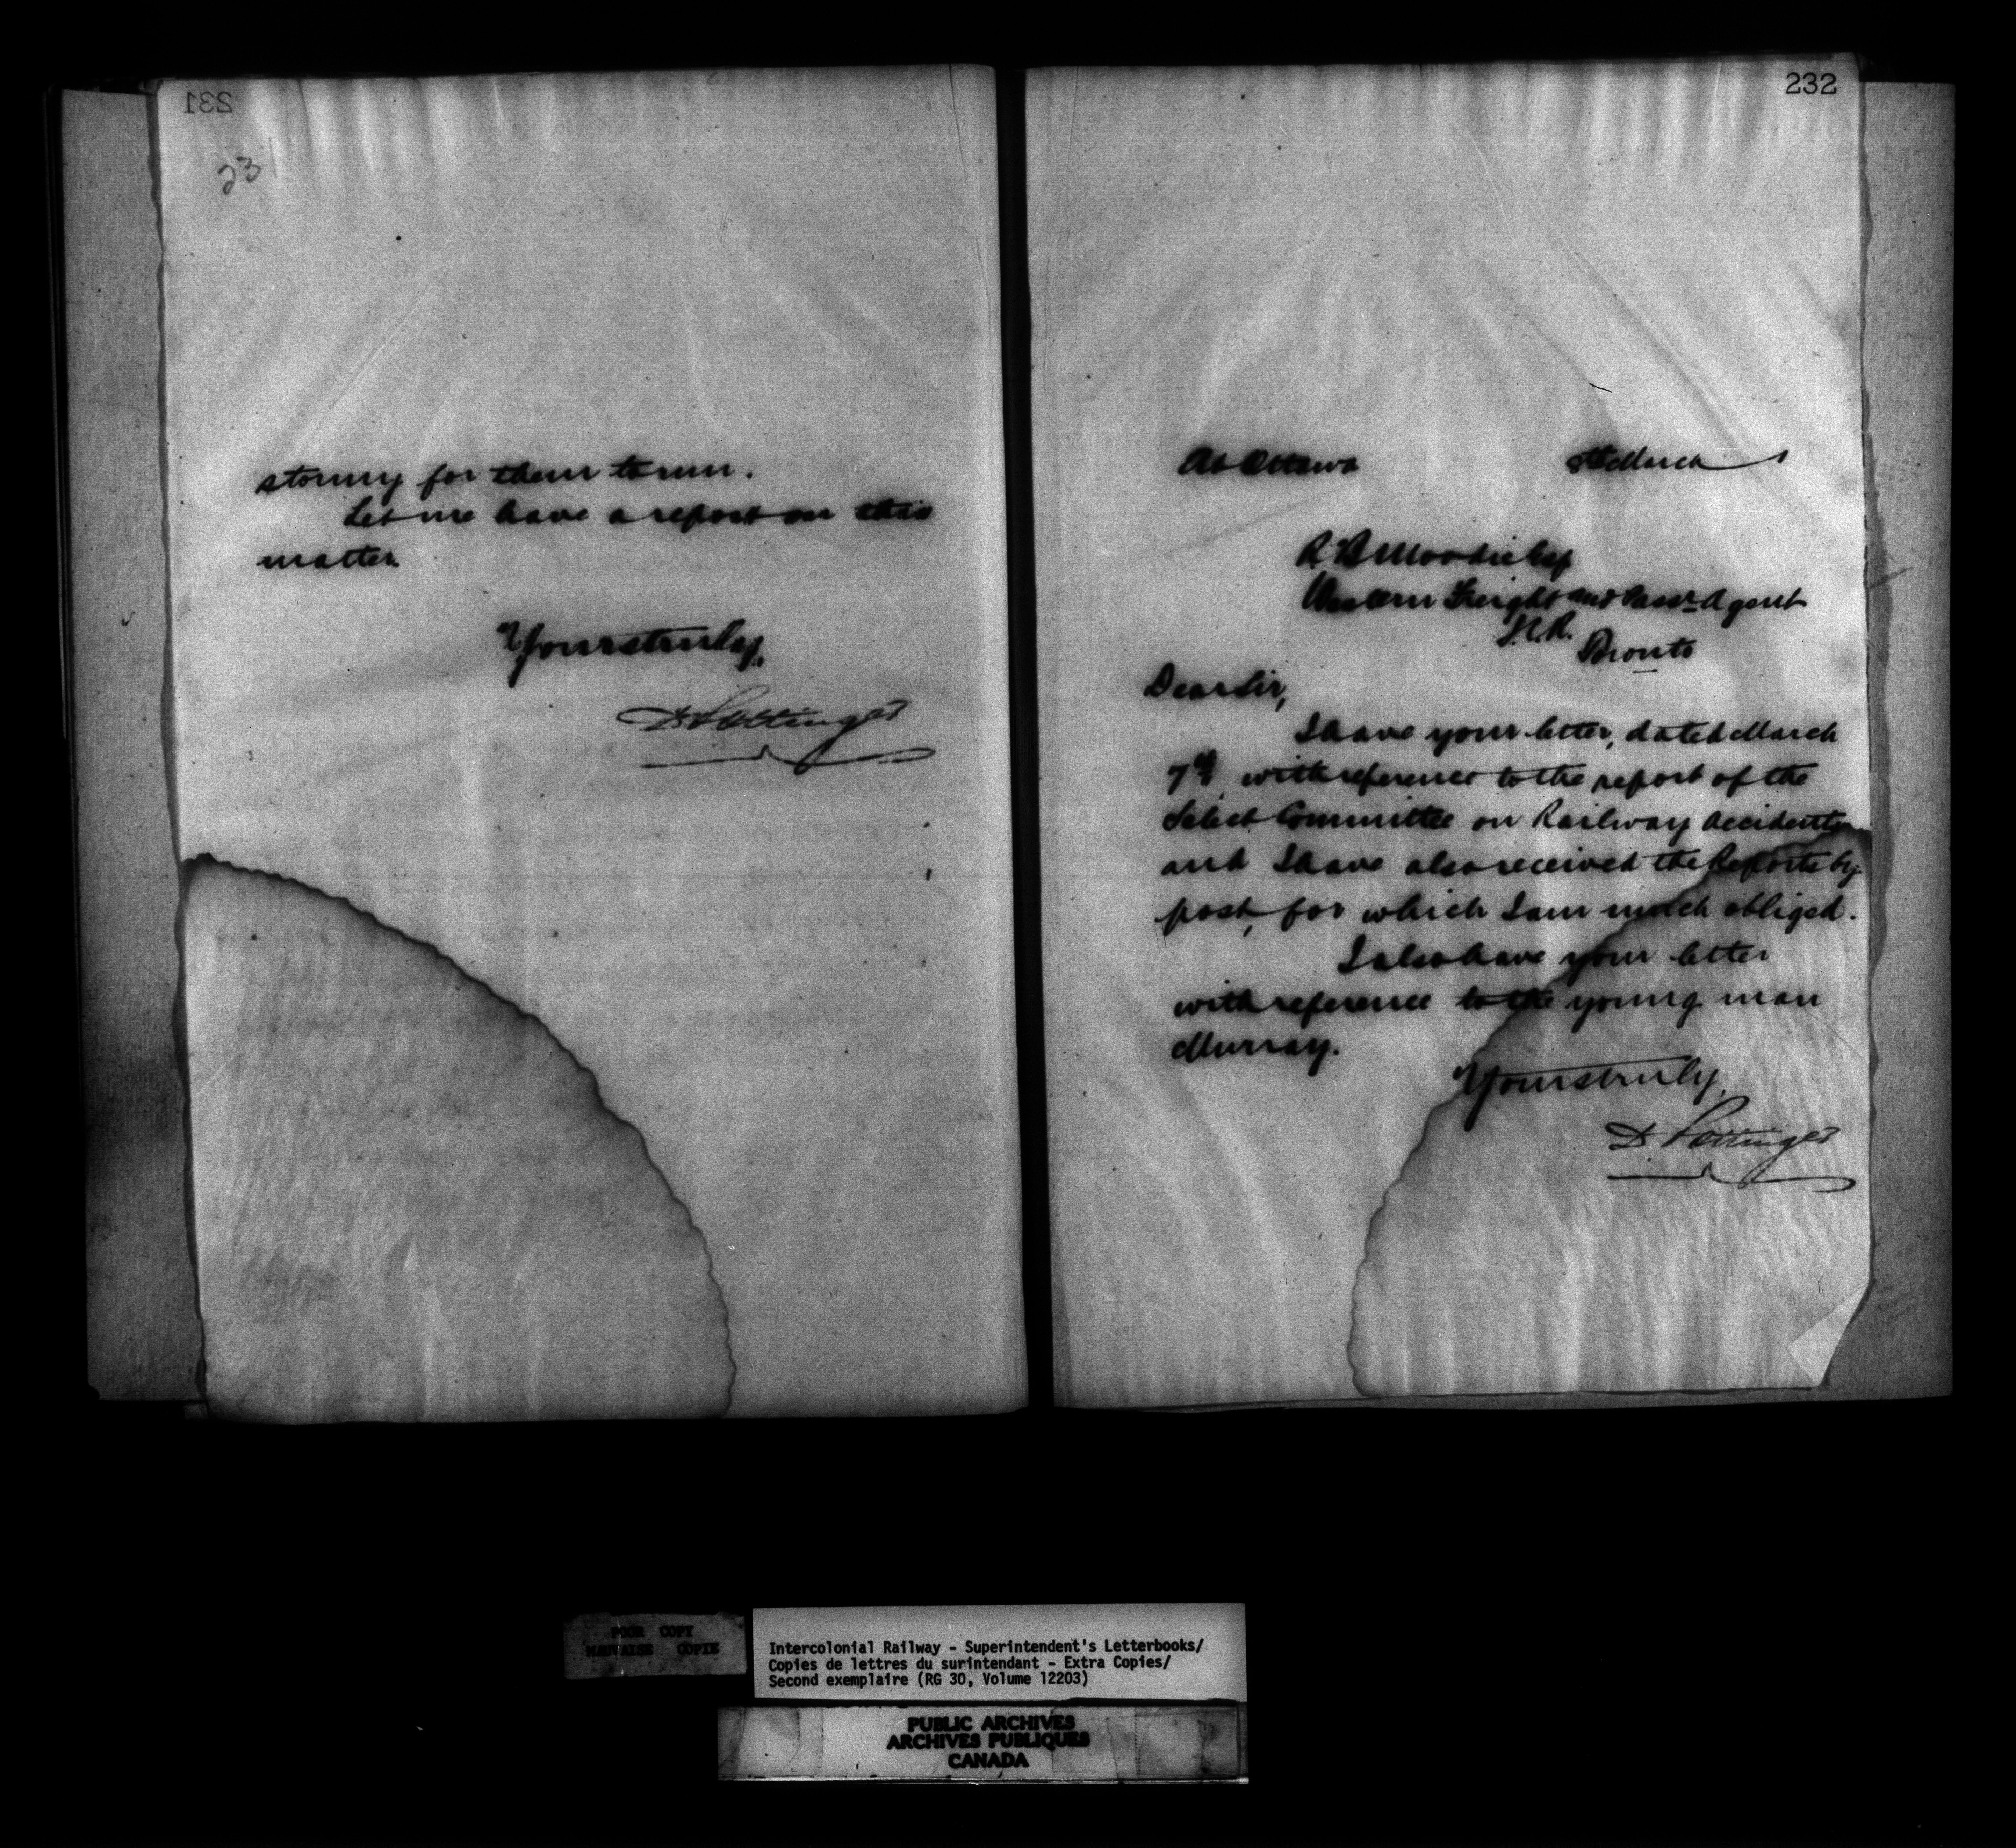 231
231
stormy for them to run.
Let me have a report on this
matter
Yours truly,
D. Pottinger
232
At Ottawa March
R B Moodie Esq
Western Freight and Passr Agent
I.C.R.
Toronto
Dear Sir,
I have your letter, dated March
7th, with reference to the report of the
Select Committee on Railway Accidents
and I have also received the Reports by
post, for which I am much obliged.
I also have your letter
with reference to the young man
Murray.
Yours truly,
D. Pottinger
POOR COPY
MAUVAISE COPIE
Intercolonial Railway - Superintendent's Letterbooks/
Copies de lettres du surintendant - Extra Copies/
Second exemplaire (RG 30, Volume 12203)
PUBLIC ARCHIVES
ARCHIVES PUBLIQUES
CANADA